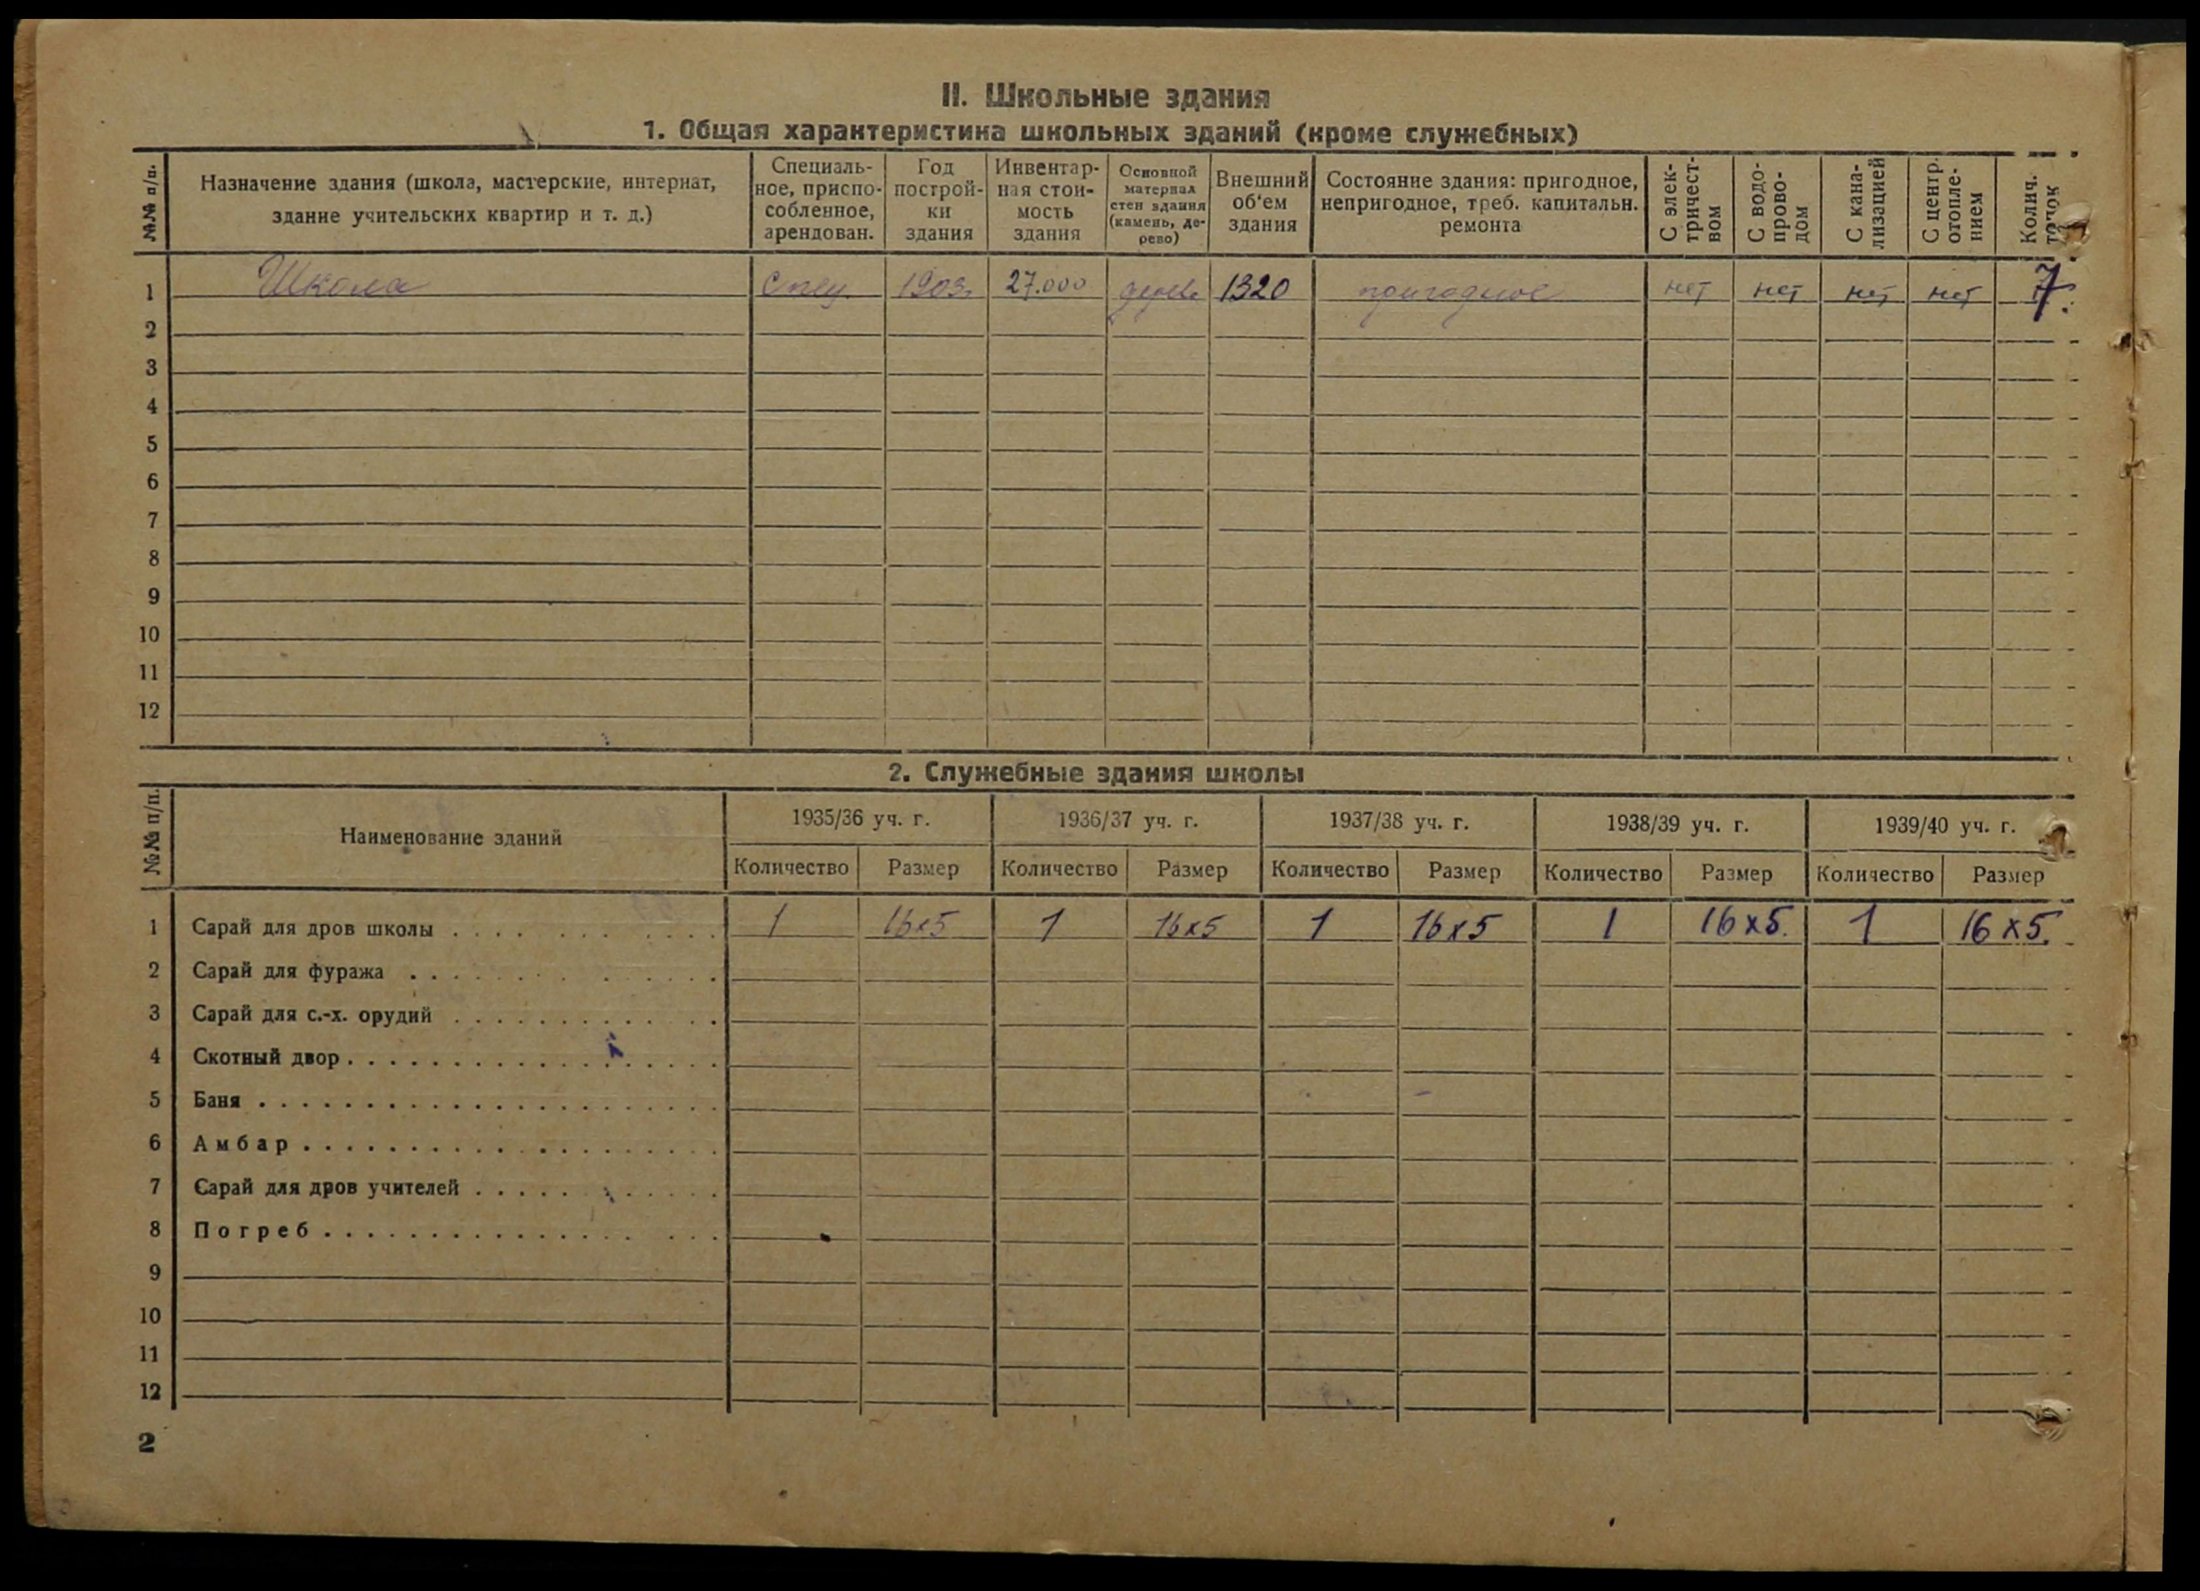 II. Школьные здания
1. Общая характеристика школьных зданий (кроме служебных)
№№ п/п.
Назначение здания (школа, мастерские, интернат,
здание учительских квартир и т. д.)
Специаль-
ное, приспо-
собленное,
арендован.
Год
построй-
ки
здания
Инвентар-
ная стои-
мость
здания
Основной
материал
стен здания
(камень, де-
рево)
Внешний
об'ем
здания
Состояние здания: пригодное,
непригодное, треб. капитальн.
ремонта
С элек-
тричест-
вом
С водо-
прово-
дом
С кана-
лизацией
С центр.
отопле-
нием
Колич.
топок
1 Школа спец. 1903г. 27.000 дерево 1320 пригодное нет нет нет нет 7.
2
3
4
5
6
7
8
9
10
11
12
2. Служебные здания школы
№№ п/п.
Наименование зданий
1935/36 уч. г. 1936/37 уч. г. 1937/38 уч. г. 1938/39 уч. г. 1939/40 уч. г.
Количество Размер Количество Размер Количество Размер Количество Размер Количество Размер
1 Сарай для дров школы 1 16х5 1 16х5 1 16х5 1 16х5. 1 16х5.
2 Сарай для фуража
3 Сарай для с.-х. орудий
4 Скотный двор
5 Баня
6 Амбар
7 Сарай для дров учителей
8 Погреб
9
10
11
12
2